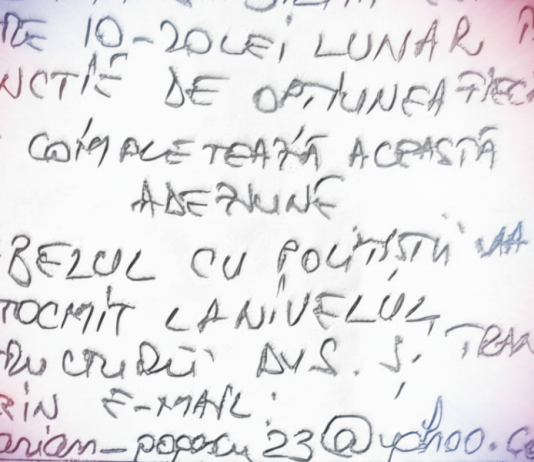 DE 10-20 LEI LUNAR
NCTIE DE OPȚIUNEA FIECĂ
COMPLETEAZĂ ACEASTĂ
ADEZIUNE
BELUL CU POLIȚIȘTII
TOCMIT LA NIVELUL
DVS. ȘI TRAN
RIN E-MAIL:
arian_popascu23@yahoo.co